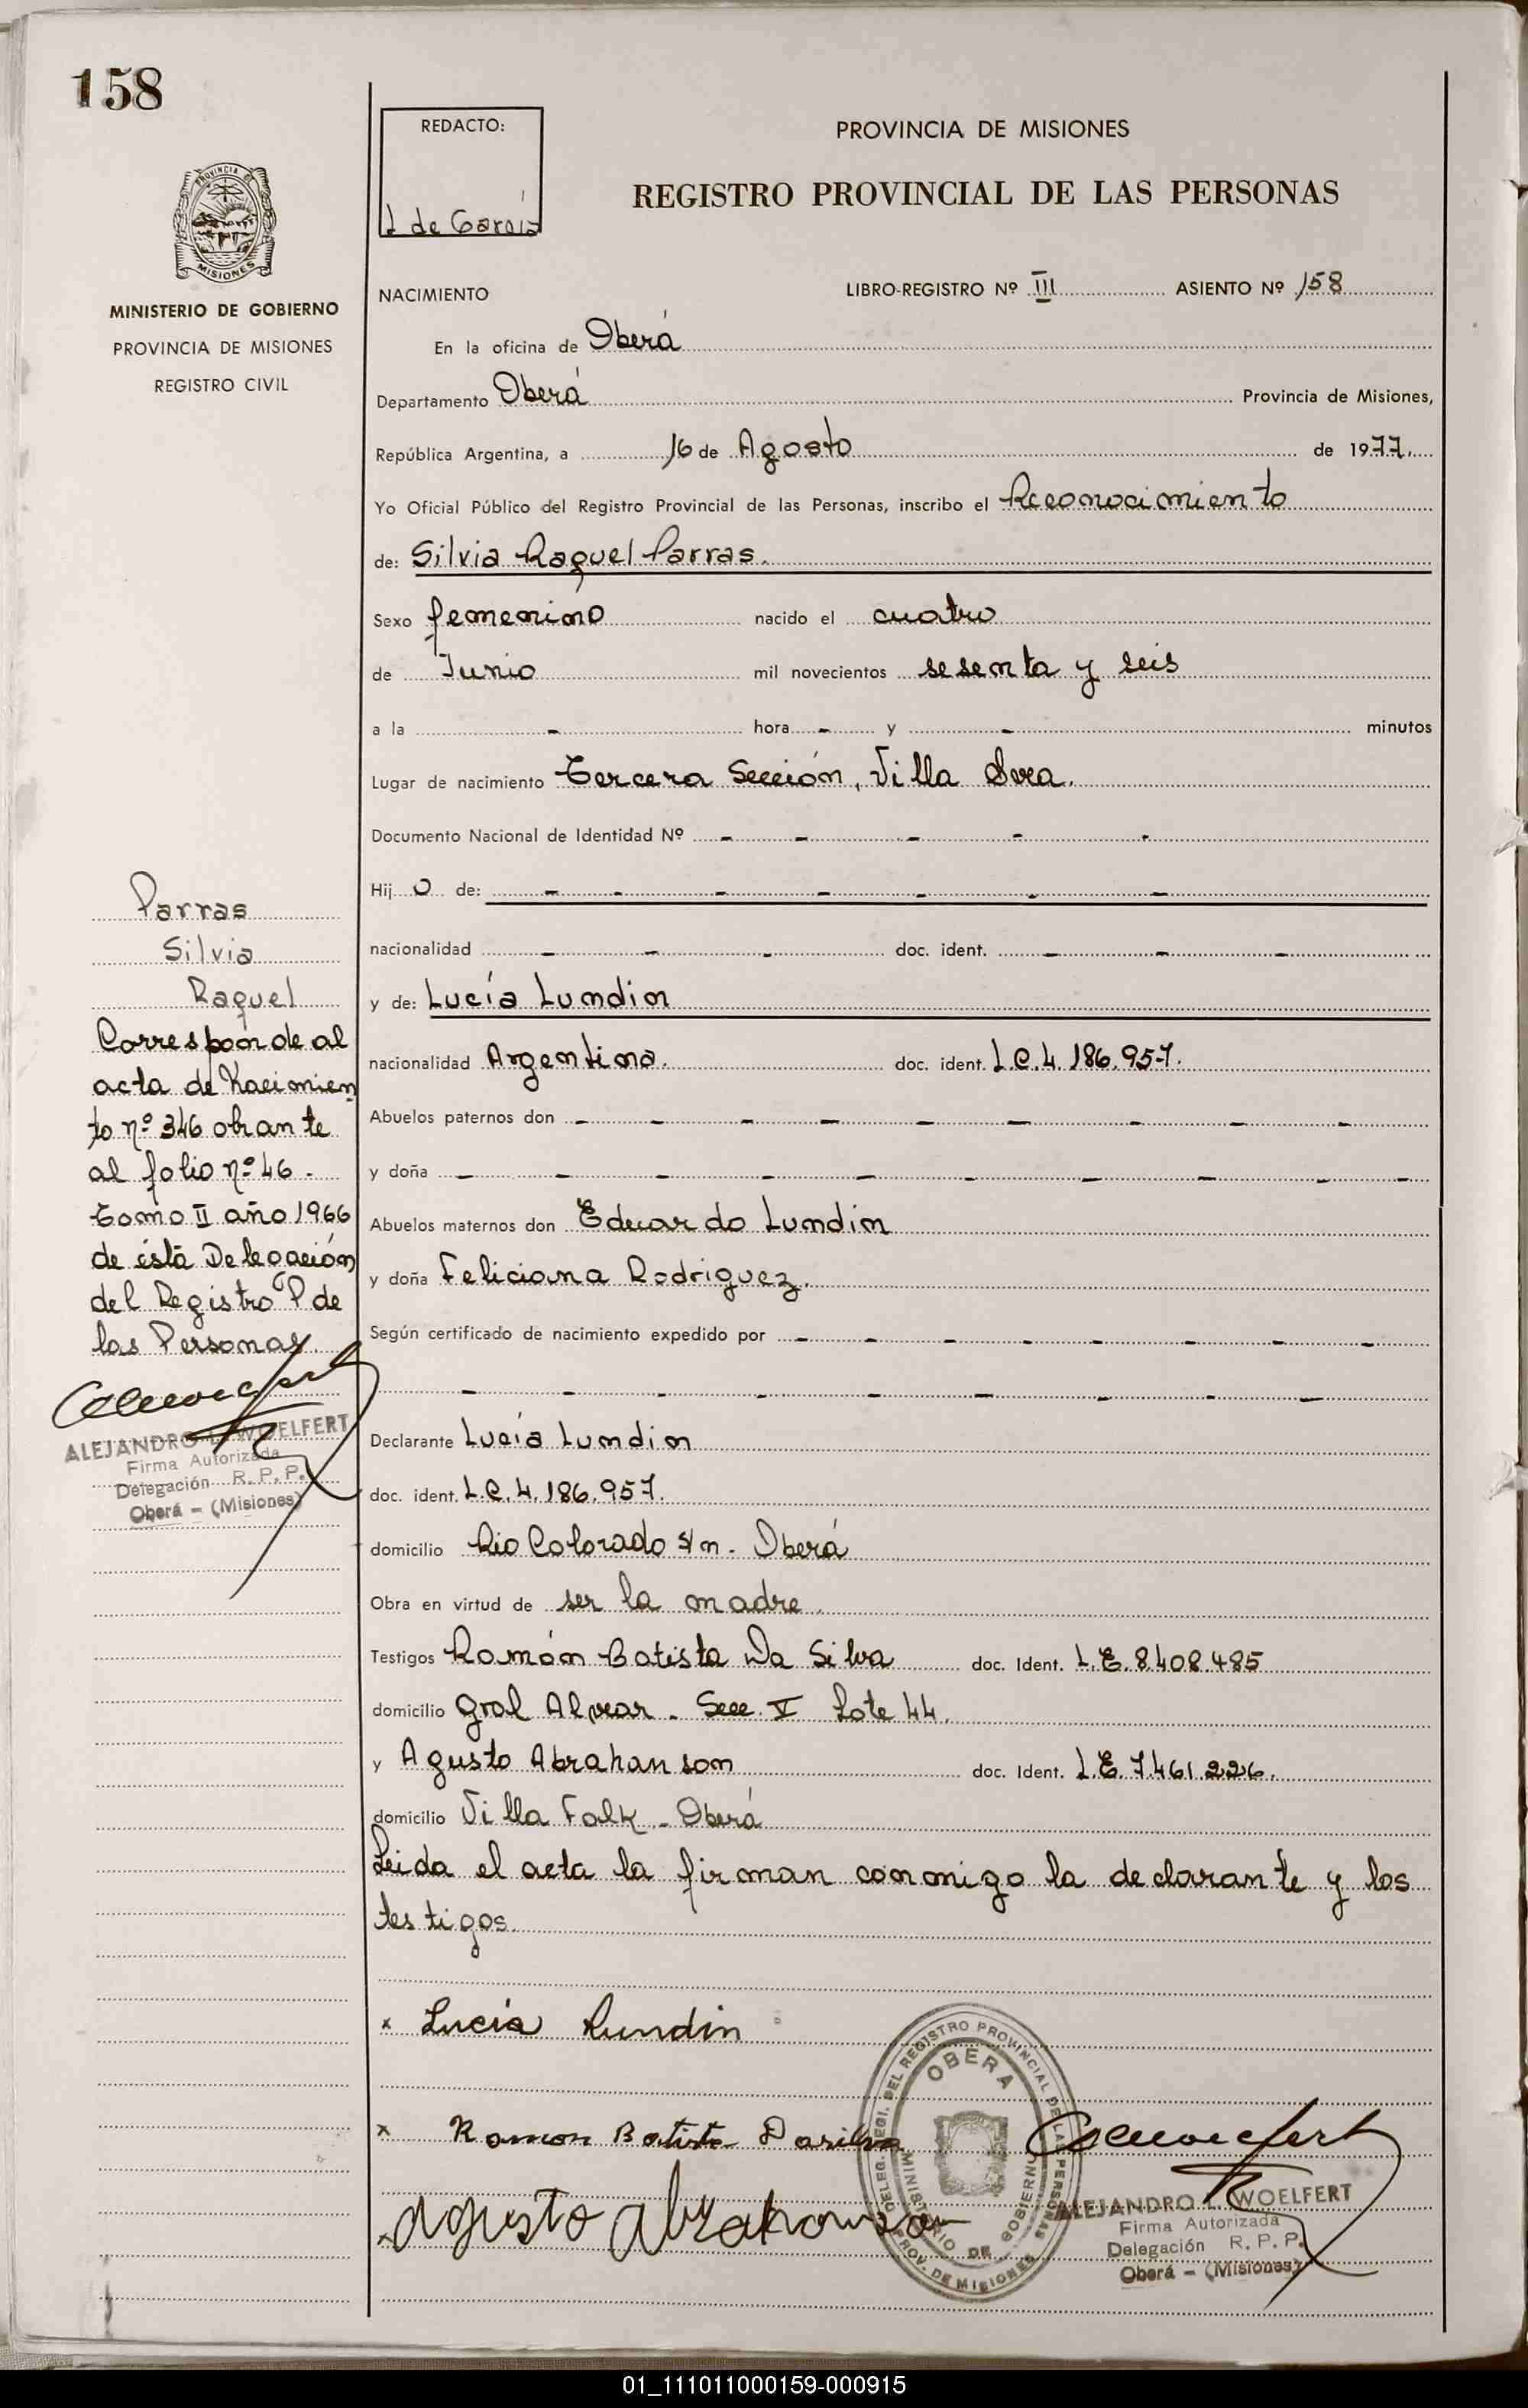 158
REDACTO:
L de García
PROVINCIA DE MISIONES
REGISTRO PROVINCIAL DE LAS PERSONAS
PROVINCIA DE
MISIONES
MINISTERIO DE GOBIERNO
PROVINCIA DE MISIONES
REGISTRO CIVIL
NACIMIENTO LIBRO-REGISTRO Nº III ASIENTO Nº 158
En la oficina de Oberá
Departamento Oberá Provincia de Misiones,
República Argentina, a 16 de Agosto de 1977.
Yo Oficial Público del Registro Provincial de las Personas, inscribo el Reconocimiento
de: Silvia Raquel Parras.
Sexo femenino nacido el cuatro
de Junio mil novecientos sesenta y seis
a la - hora - y - minutos
Lugar de nacimiento Tercera Sección, Villa Svea.
Documento Nacional de Identidad Nº - - - - -
Hij o de: - - - - - - -
nacionalidad - - - doc. ident. - - -
y de: Lucía Lundin
nacionalidad Argentina. doc. ident. L.C.4.186.957.
Abuelos paternos don - - - - - - - - -
y doña - - - - - - - - - -
Abuelos maternos don Eduardo Lundin
y doña Feliciana Rodriguez.
Según certificado de nacimiento expedido por - - - - - - - -
- - - - - - - - -
Declarante Lucía Lundin
doc. ident. L.C.4.186.957.
domicilio Rio Colorado s/n - Oberá
Obra en virtud de ser la madre.
Testigos Ramón Batista Da Silva doc. Ident. L.E.8.408.485
domicilio Gral Alvear - Secc. V Lote 44.
y Agusto Abrahanson doc. Ident. L.E.7.461.226.
domicilio Villa Falk - Oberá
Leida el acta la firman conmigo la declarante y los
testigos.
Parras
Silvia
Raquel
Corresponde al
acta de Nacimien
to nº 346 obrante
al folio nº 46 -
Tomo II año 1966
de ésta Delegación
del Registro P de
las Personas.
ALEJANDRO L. WOELFERT
Firma Autorizada
Delegación R. P. P.
Oberá - (Misiones)
x Lucía Lundin
x Ramon Batista Dasilva
x agusto abrahanson
DELEG. REGI. DEL REGISTRO PROVINCIAL DE LAS PERSONAS
OBERA
MINISTERIO DE GOBIERNO
PROV. DE MISIONES
ALEJANDRO L. WOELFERT
Firma Autorizada
Delegación R. P. P.
Oberá - (Misiones)
01_111011000159-000915